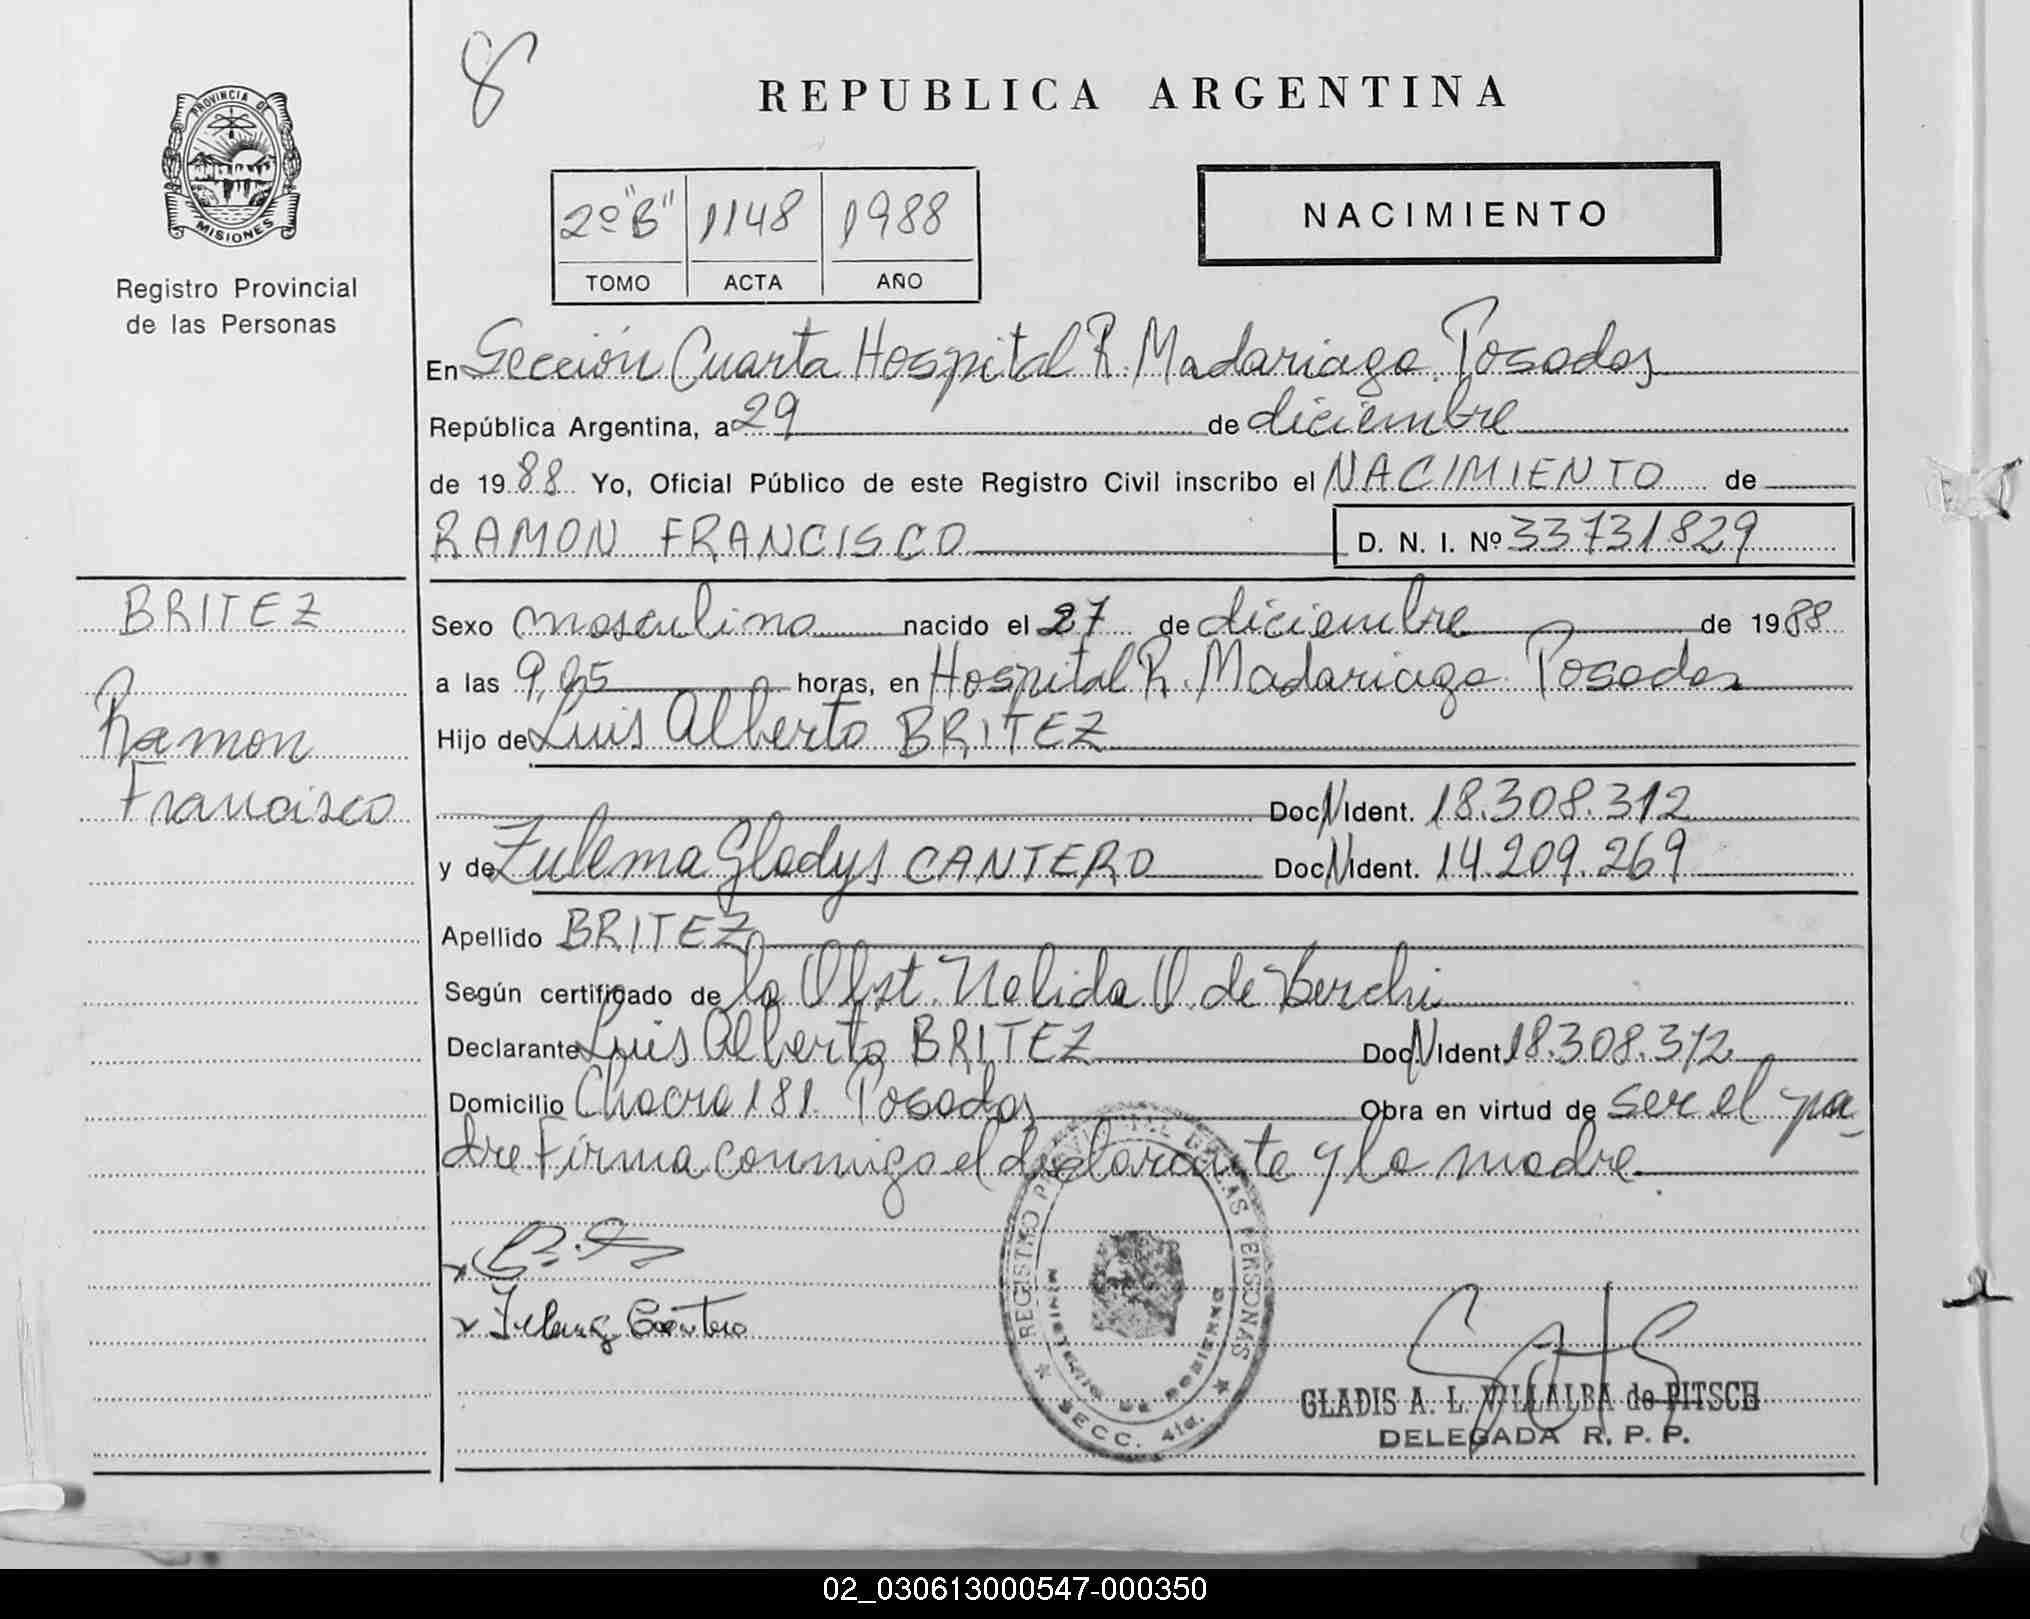 8
REPUBLICA ARGENTINA
PROVINCIA DE
MISIONES
Registro Provincial
de las Personas
2º "B" 1148 1988
TOMO ACTA AÑO
NACIMIENTO
En Sección Cuarta Hospital R. Madariaga. Posadas
República Argentina, a 29 de diciembre
de 1988 Yo, Oficial Público de este Registro Civil inscribo el NACIMIENTO de
RAMON FRANCISCO D. N. I. Nº 33731829
BRITEZ
Ramon
Francisco
Sexo masculino nacido el 27 de diciembre de 1988
a las horas, en Hospital R. Madariaga Posadas
Hijo de Luis Alberto BRITEZ
Doc N Ident. 18.308.312
y de Zulema Gladys CANTERO Doc N Ident. 14.209.269
Apellido BRITEZ
Según certificado de la Obst. Nelida O. de Berchi
Declarante Luis Alberto BRITEZ Doc N Ident. 18.308.312
Domicilio Chacra 181. Posadas Obra en virtud de ser el pa-
dre Firma conmigo el declarante y la madre.
Cantero
REGISTRO PROVINCIAL DE LAS PERSONAS
MINISTERIO DE GOBIERNO
SECC. 4ta.
GLADIS A. L. VILLALBA de PITSCH
DELEGADA R. P. P.
02_030613000547-000350